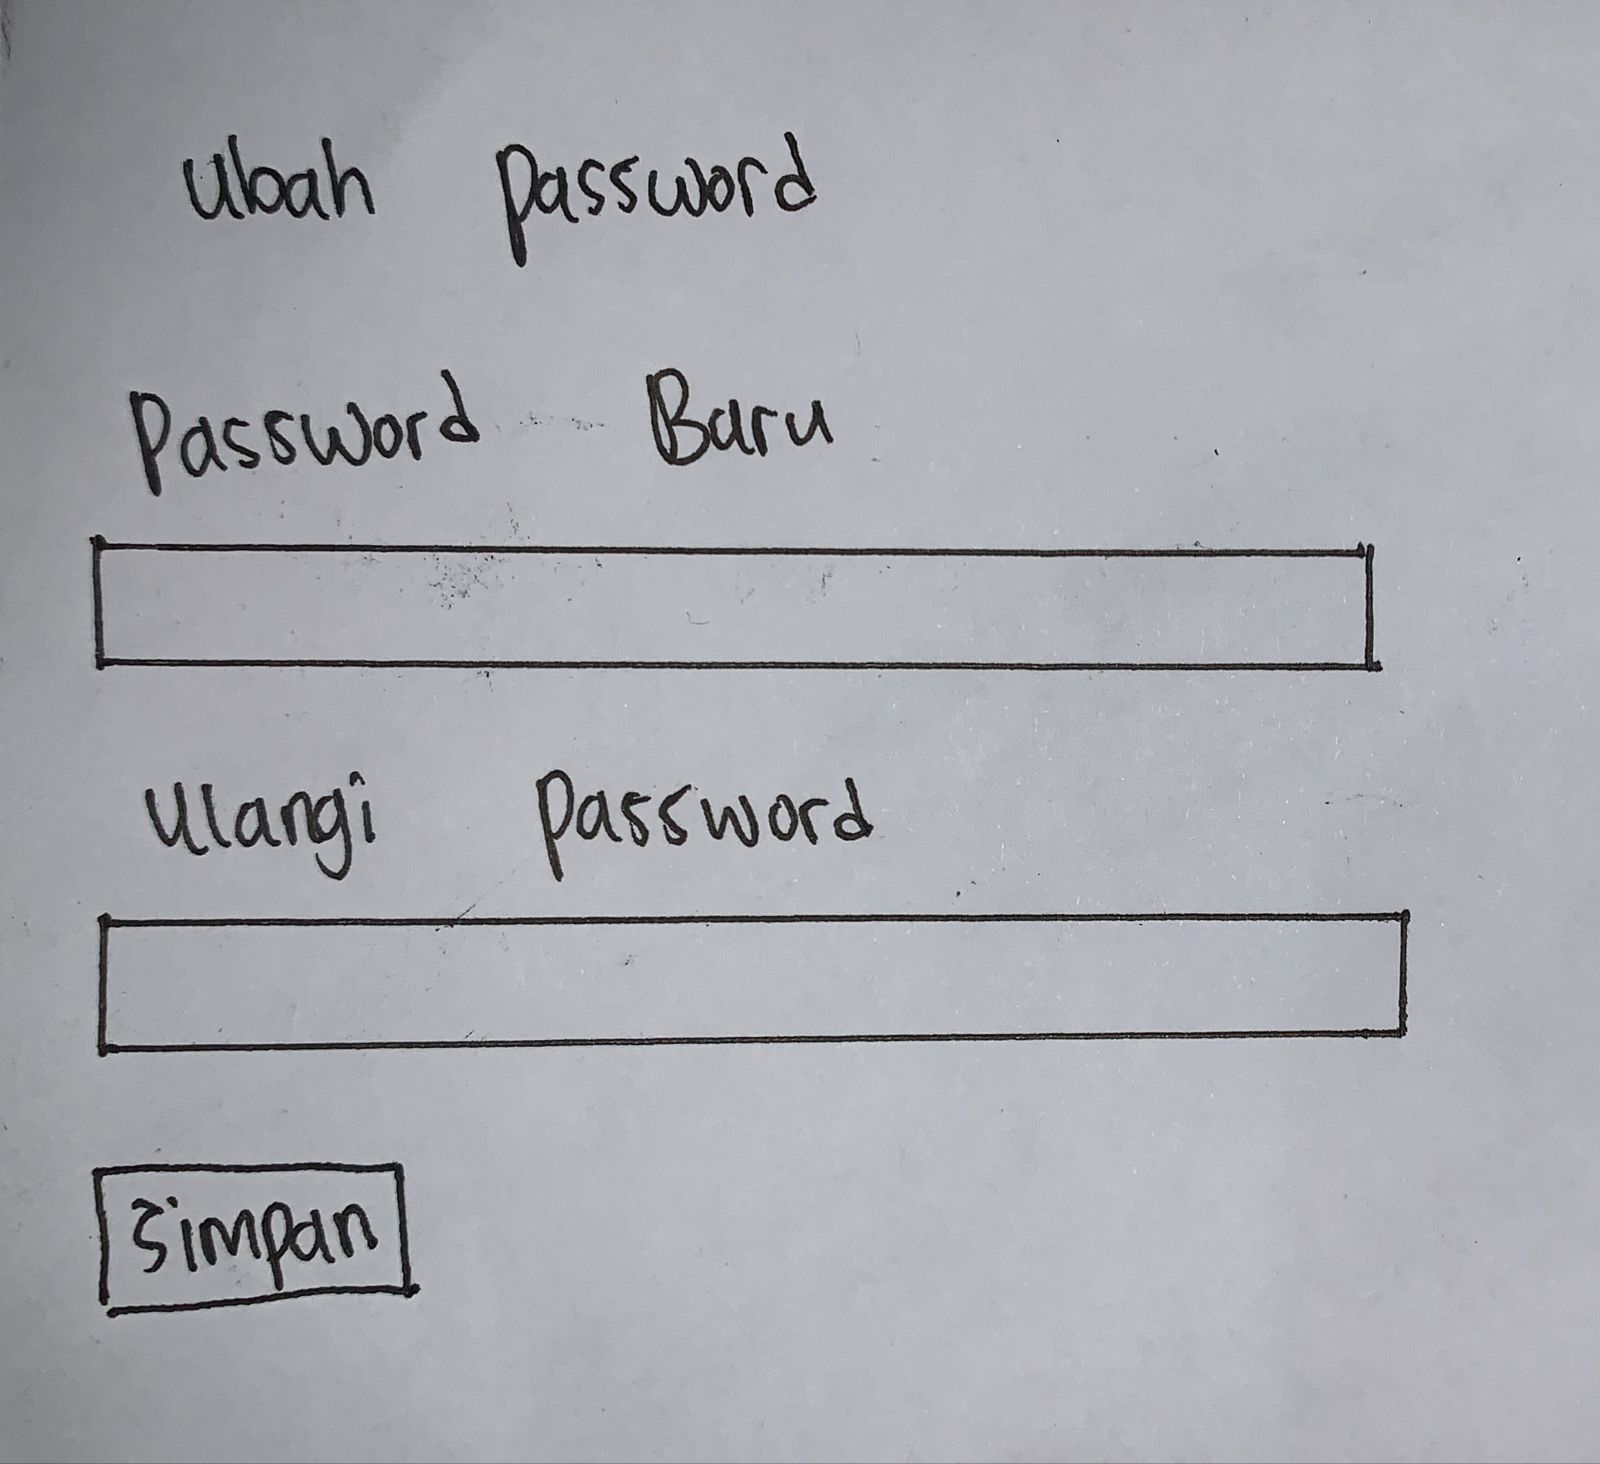 Ubah password
Password Baru
Ulangi password
Simpan